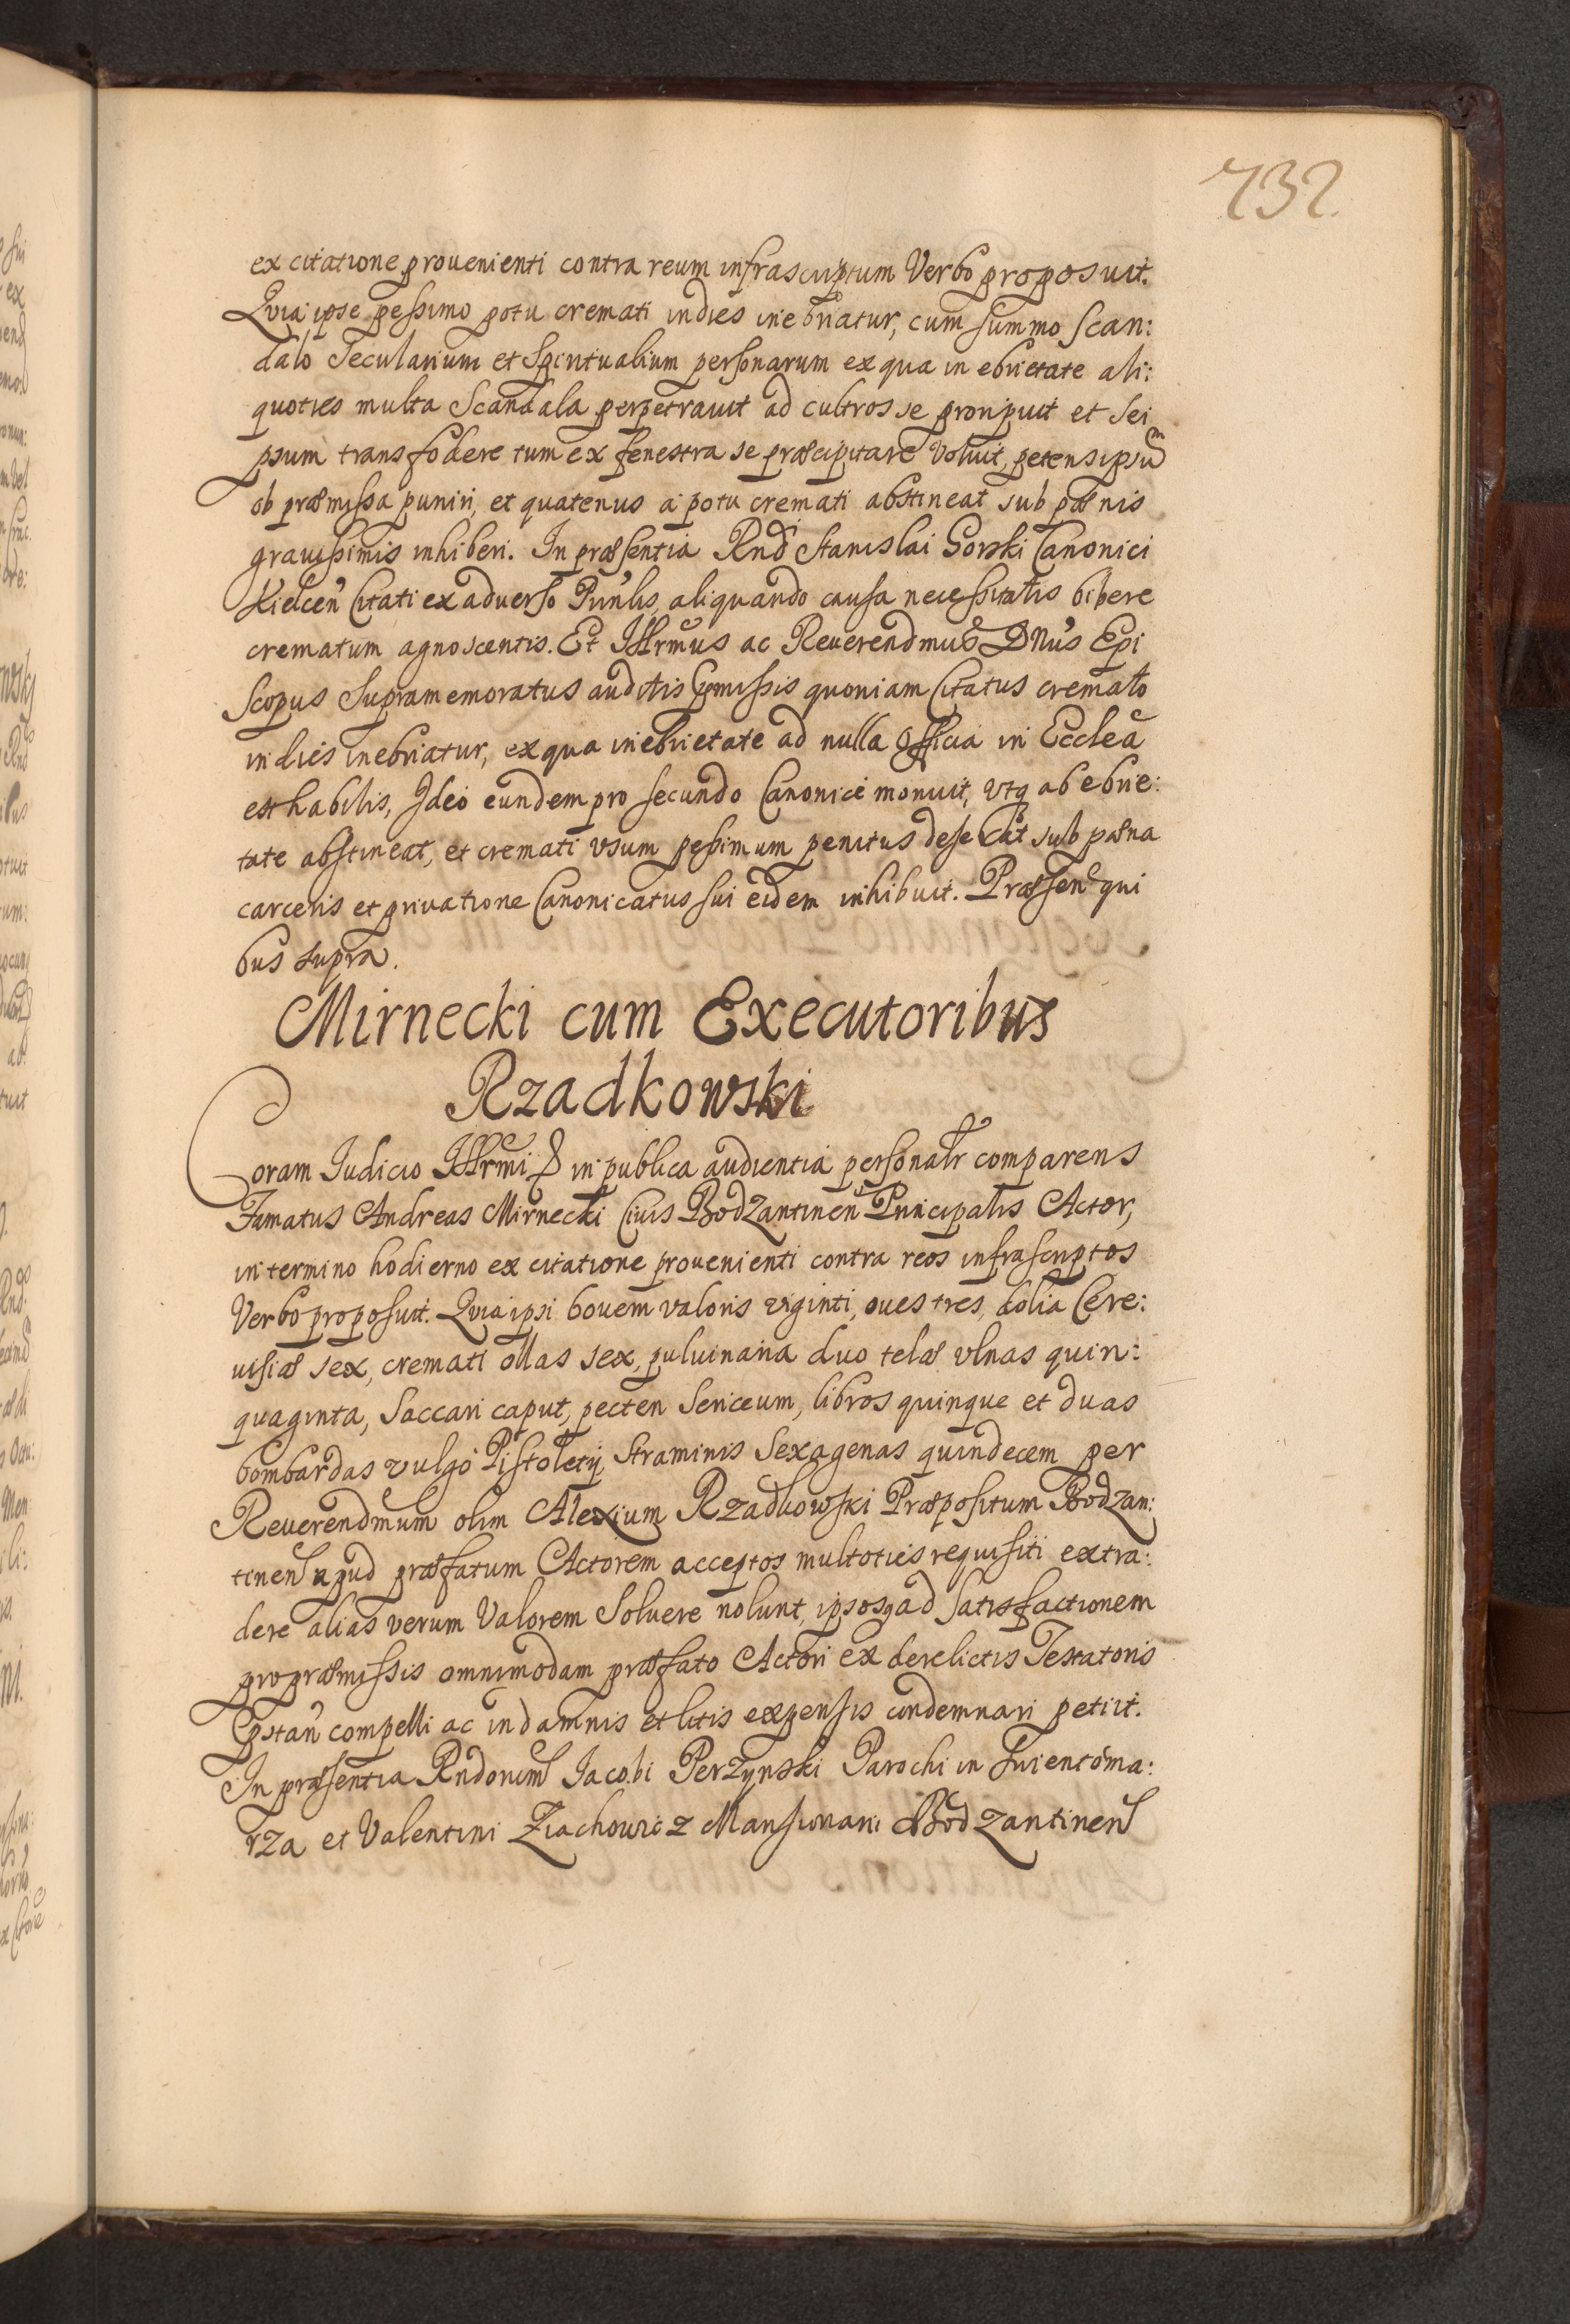 732.
ex citatione prouenienti contra reum infrascriptum Verbo proposuit.
Quia ipse pessimo potu cremati indies inebriatur, cum summo scan:
dalo Secularium et Spiritualium personarum ex qua in ebrietate ali:
quoties multa Scandala perpetrauit ad cultros se proripuit et sei
psum transfodere tum ex fenestra se præcipitare voluit, petens ipsum
ob præmissa puniri, et quatenus a potu cremati abstineat sub pænis
grauissimis inhiberi. In præsentia Rnd Stanislai Gorski Canonici
Kielcen Citati ex aduerso Prinlis, aliquando causa necessitatis bibere
crematum agnoscentis. Et Illrmus ac Reuerendmus DNus Epi
scopus supramemoratus auditis præmissis quoniam Citatus cremato
indies inebriatur, ex qua inebrietate ad nulla Officia in Ecclea
est habilis, Ideo eundem pro secundo Canonice monuit, vtq ab ebrie:
tate abstineat, et cremati vsum pessimum penitus deserat sub pæna
carceris et priuatione Canonicatus sui eidem inhibuit. Præsen qui
bus supra.
Mirnecki cum Executoribus
Rzadkowski
Coram Iudicio Illrmi in publica audientia personalr comparens
Famatus Andreas Mirnecki Ciuis Bodzantinen Principalis Actor,
in termino hodierno ex citatione prouenienti contra reos infrascriptos
Verbo proposuit. Quia ipsi bouem valoris viginti, oues tres, dolia Cere:
uisiæ sex, cremati ollas sex, puluinaria duo telæ vlnas quin:
quaginta, Saccari caput, pecten Sericeum, libros quinque et duas
bombardas vulgo Pistolety, straminis Sexagenas quindecem per
Reuerendmum olim Alexium Rzadkowski Præpositum Bodzan:
tinen apud præfatum Actorem acceptos multoties requisiti extra:
dere alias verum Valorem Soluere nolunt, ipsosq ad satisfactionem
pro præmissis omnimodam præfato Actori ex derelictis Testatoris
præstan compelli ac in damnis et litis expensis condemnari petiit.
In præsentia Rndorum Iacobi Perzynski Parochi in Swientoma:
rza et Valentini Ziachowicz Mansionarii Bodzantinen